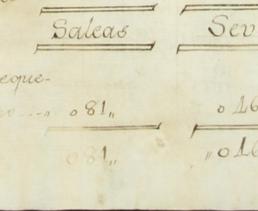 Saleas Sev
eque-
081,, 016
081,, ,,016